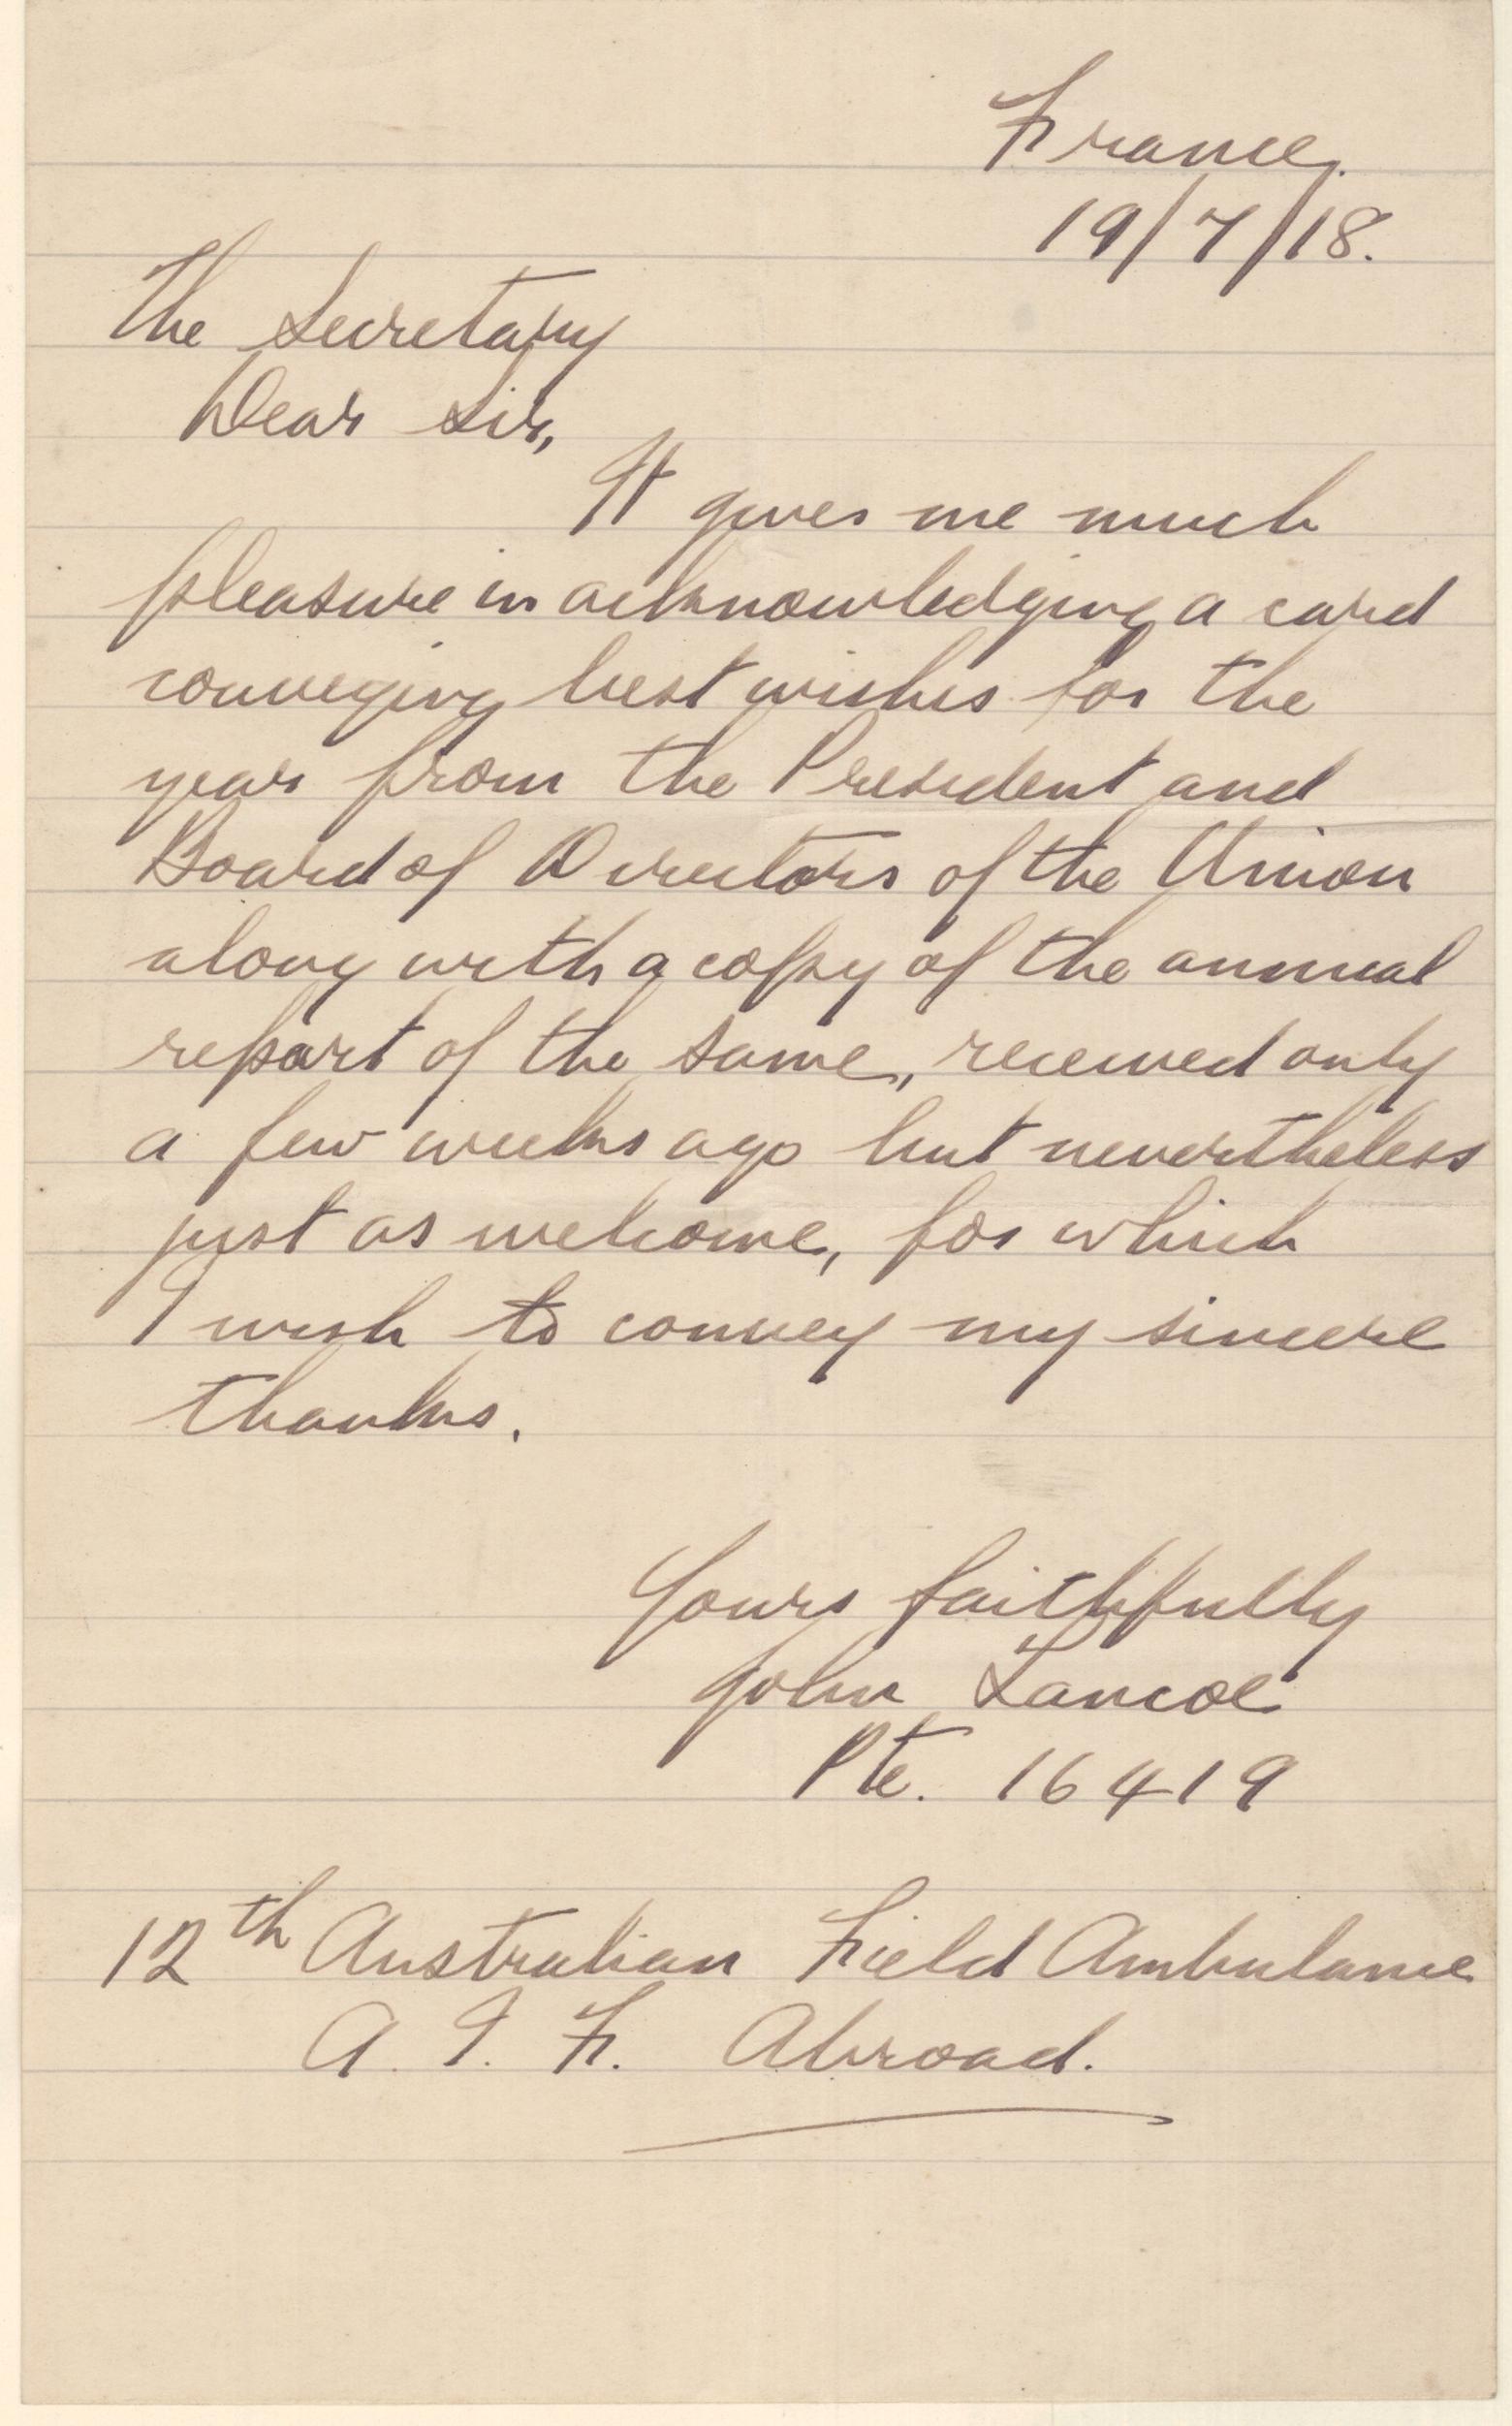 France,
19/7/18.
The Secretary
Dear Sir,
It gives me much
pleasure in acknowledging a card
conveying best wishes for the
year from the President and
Board of Directors of the Union
along with a copy of the annual
report of the same, received only
a few weeks ago but nevertheless
just as welcome, for which
I wish to convey my sincere
thanks.
Yours faithfully
John Lancoe
Pte. 16419
12th Australian Field Ambulance
A. I. F. Abroad.